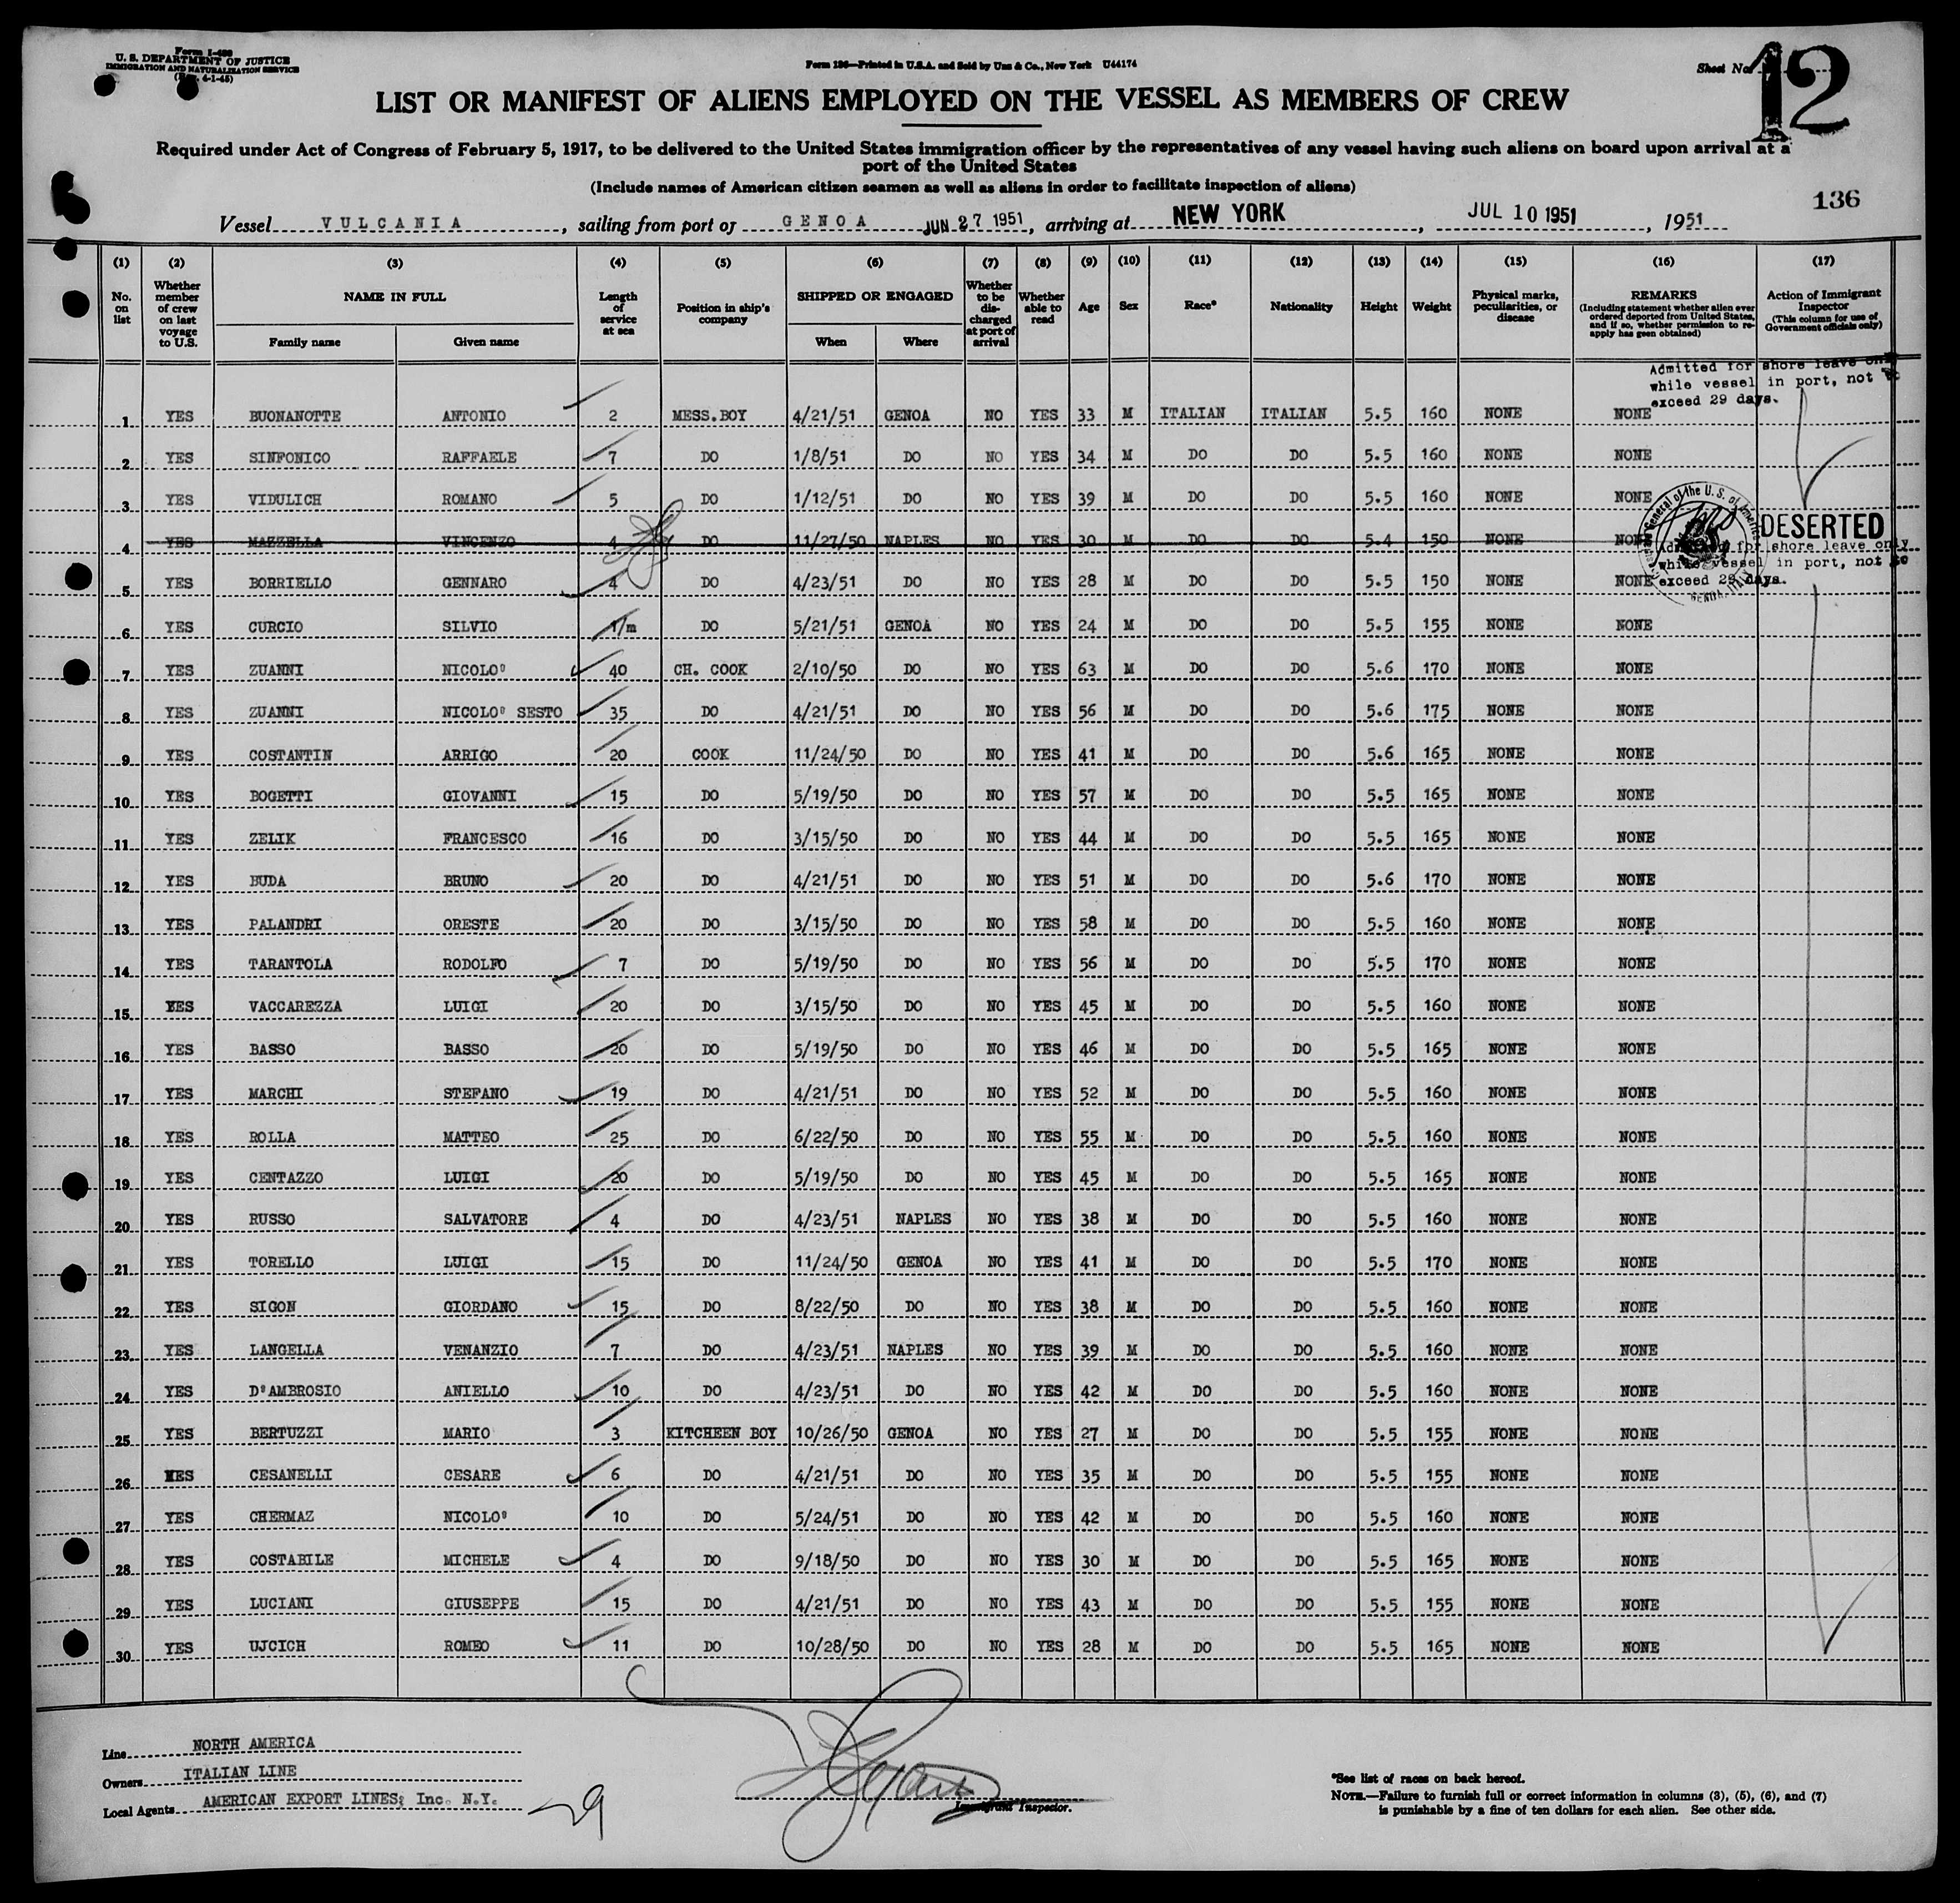 Form I-480
U. S. DEPARTMENT OF JUSTICE
IMMIGRATION AND NATURALIZATION SERVICE
(Rev. 4-1-45)
Form 136—Printed in U.S.A. and Sold by Unz & Co., New York U44174
Sheet No. 12
LIST OR MANIFEST OF ALIENS EMPLOYED ON THE VESSEL AS MEMBERS OF CREW
Required under Act of Congress of February 5, 1917, to be delivered to the United States immigration officer by the representatives of any vessel having such aliens on board upon arrival at a
port of the United States
(Include names of American citizen seamen as well as aliens in order to facilitate inspection of aliens)
136
Vessel VULCANIA, sailing from port of GENOA JUN 27 1951, arriving at NEW YORK, JUL 10 1951, 1951
(1) (2) (3) (4) (5) (6) (7) (8) (9) (10) (11) (12) (13) (14) (15) (16) (17)
No. on list
Whether member of crew on last voyage to U.S.
NAME IN FULL
Family name Given name
Length of service at sea
Position in ship's company
SHIPPED OR ENGAGED
When Where
Whether to be discharged at port of arrival
Whether able to read
Age
Sex
Race*
Nationality
Height
Weight
Physical marks, peculiarities, or disease
REMARKS
(Including statement whether alien ever ordered deported from United States, and if so, whether permission to re-apply has geen obtained)
Action of Immigrant Inspector
(This column for use of Government officials only)
Admitted for shore leave only
while vessel in port, not to
exceed 29 days.
1 YES BUONANOTTE ANTONIO 2 MESS.BOY 4/21/51 GENOA NO YES 33 M ITALIAN ITALIAN 5.5 160 NONE NONE
2 YES SINFONICO RAFFAELE 7 DO 1/8/51 DO NO YES 34 M DO DO 5.5 160 NONE NONE
3 YES VIDULICH ROMANO 5 DO 1/12/51 DO NO YES 39 M DO DO 5.5 160 NONE NONE
4 YES MAZZELLA VINCENZO 4 DO 11/27/50 NAPLES NO YES 30 M DO DO 5.4 150 NONE NONE DESERTED
Admitted for shore leave only
while vessel in port, not to
exceed 29 days.
5 YES BORRIELLO GENNARO 4 DO 4/23/51 DO NO YES 28 M DO DO 5.5 150 NONE NONE
6 YES CURCIO SILVIO 1/m DO 5/21/51 GENOA NO YES 24 M DO DO 5.5 155 NONE NONE
7 YES ZUANNI NICOLO' 40 CH. COOK 2/10/50 DO NO YES 63 M DO DO 5.6 170 NONE NONE
8 YES ZUANNI NICOLO' SESTO 35 DO 4/21/51 DO NO YES 56 M DO DO 5.6 175 NONE NONE
9 YES COSTANTIN ARRIGO 20 COOK 11/24/50 DO NO YES 41 M DO DO 5.6 165 NONE NONE
10 YES BOGETTI GIOVANNI 15 DO 5/19/50 DO NO YES 57 M DO DO 5.5 165 NONE NONE
11 YES ZELIK FRANCESCO 16 DO 3/15/50 DO NO YES 44 M DO DO 5.5 165 NONE NONE
12 YES BUDA BRUNO 20 DO 4/21/51 DO NO YES 51 M DO DO 5.6 170 NONE NONE
13 YES PALANDRI ORESTE 20 DO 3/15/50 DO NO YES 58 M DO DO 5.5 160 NONE NONE
14 YES TARANTOLA RODOLFO 7 DO 5/19/50 DO NO YES 56 M DO DO 5.5 170 NONE NONE
15 YES VACCAREZZA LUIGI 20 DO 3/15/50 DO NO YES 45 M DO DO 5.5 160 NONE NONE
16 YES BASSO BASSO 20 DO 5/19/50 DO NO YES 46 M DO DO 5.5 165 NONE NONE
17 YES MARCHI STEFANO 19 DO 4/21/51 DO NO YES 52 M DO DO 5.5 160 NONE NONE
18 YES ROLLA MATTEO 25 DO 6/22/50 DO NO YES 55 M DO DO 5.5 160 NONE NONE
19 YES CENTAZZO LUIGI 20 DO 5/19/50 DO NO YES 45 M DO DO 5.5 165 NONE NONE
20 YES RUSSO SALVATORE 4 DO 4/23/51 NAPLES NO YES 38 M DO DO 5.5 160 NONE NONE
21 YES TORELLO LUIGI 15 DO 11/24/50 GENOA NO YES 41 M DO DO 5.5 170 NONE NONE
22 YES SIGON GIORDANO 15 DO 8/22/50 DO NO YES 38 M DO DO 5.5 160 NONE NONE
23 YES LANGELLA VENANZIO 7 DO 4/23/51 NAPLES NO YES 39 M DO DO 5.5 160 NONE NONE
24 YES D'AMBROSIO ANIELLO 10 DO 4/23/51 DO NO YES 42 M DO DO 5.5 160 NONE NONE
25 YES BERTUZZI MARIO 3 KITCHEEN BOY 10/26/50 GENOA NO YES 27 M DO DO 5.5 155 NONE NONE
26 YES CESANELLI CESARE 6 DO 4/21/51 DO NO YES 35 M DO DO 5.5 155 NONE NONE
27 YES CHERMAZ NICOLO' 10 DO 5/24/51 DO NO YES 42 M DO DO 5.5 160 NONE NONE
28 YES COSTABILE MICHELE 4 DO 9/18/50 DO NO YES 30 M DO DO 5.5 165 NONE NONE
29 YES LUCIANI GIUSEPPE 15 DO 4/21/51 DO NO YES 43 M DO DO 5.5 155 NONE NONE
30 YES UJCICH ROMEO 11 DO 10/28/50 DO NO YES 28 M DO DO 5.5 165 NONE NONE
Line NORTH AMERICA
Owners ITALIAN LINE
Local Agents AMERICAN EXPORT LINES, Inc. N.Y.
29
Immigrant Inspector.
*See list of races on back hereof.
NOTE.—Failure to furnish full or correct information in columns (3), (5), (6), and (7)
is punishable by a fine of ten dollars for each alien. See other side.